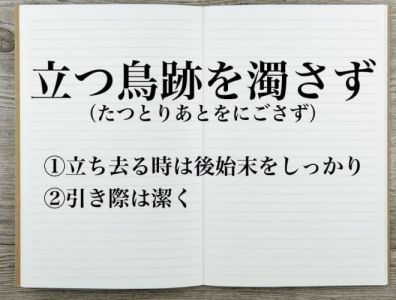 立つ鳥跡を濁さず
（たつとりあとをにごさず）
①立ち去る時は後始末をしっかり
②引き際は潔く